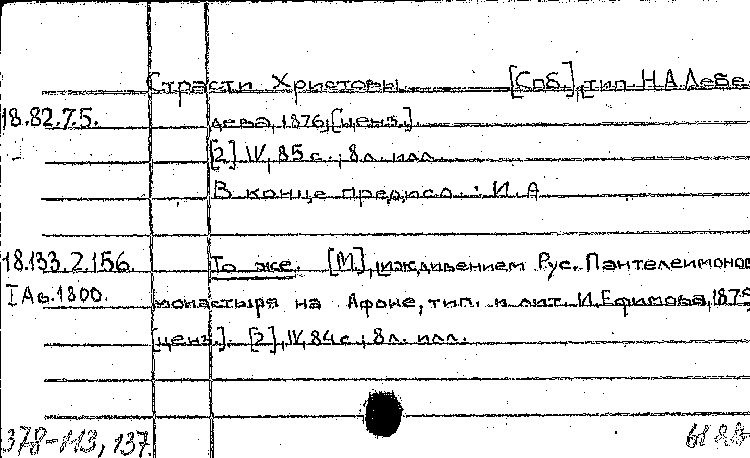 Страсти Христовы [Спб.], тип. Н.А. Лебе-
18.82.7.5. дева, 1876, [ценз.].
[2] IV, 85 с.; 8 л. илл.
В конце предисл.: И. А
18.133.2.156. То же. [М], иждивением Рус. Пантелеимонов
I Ав.1800. монастыря на Афоне, тип. и лит. И. Ефимова, 1879
[ценз.]. [2], IV, 84 с.; 8 л. илл.
378-113, 137